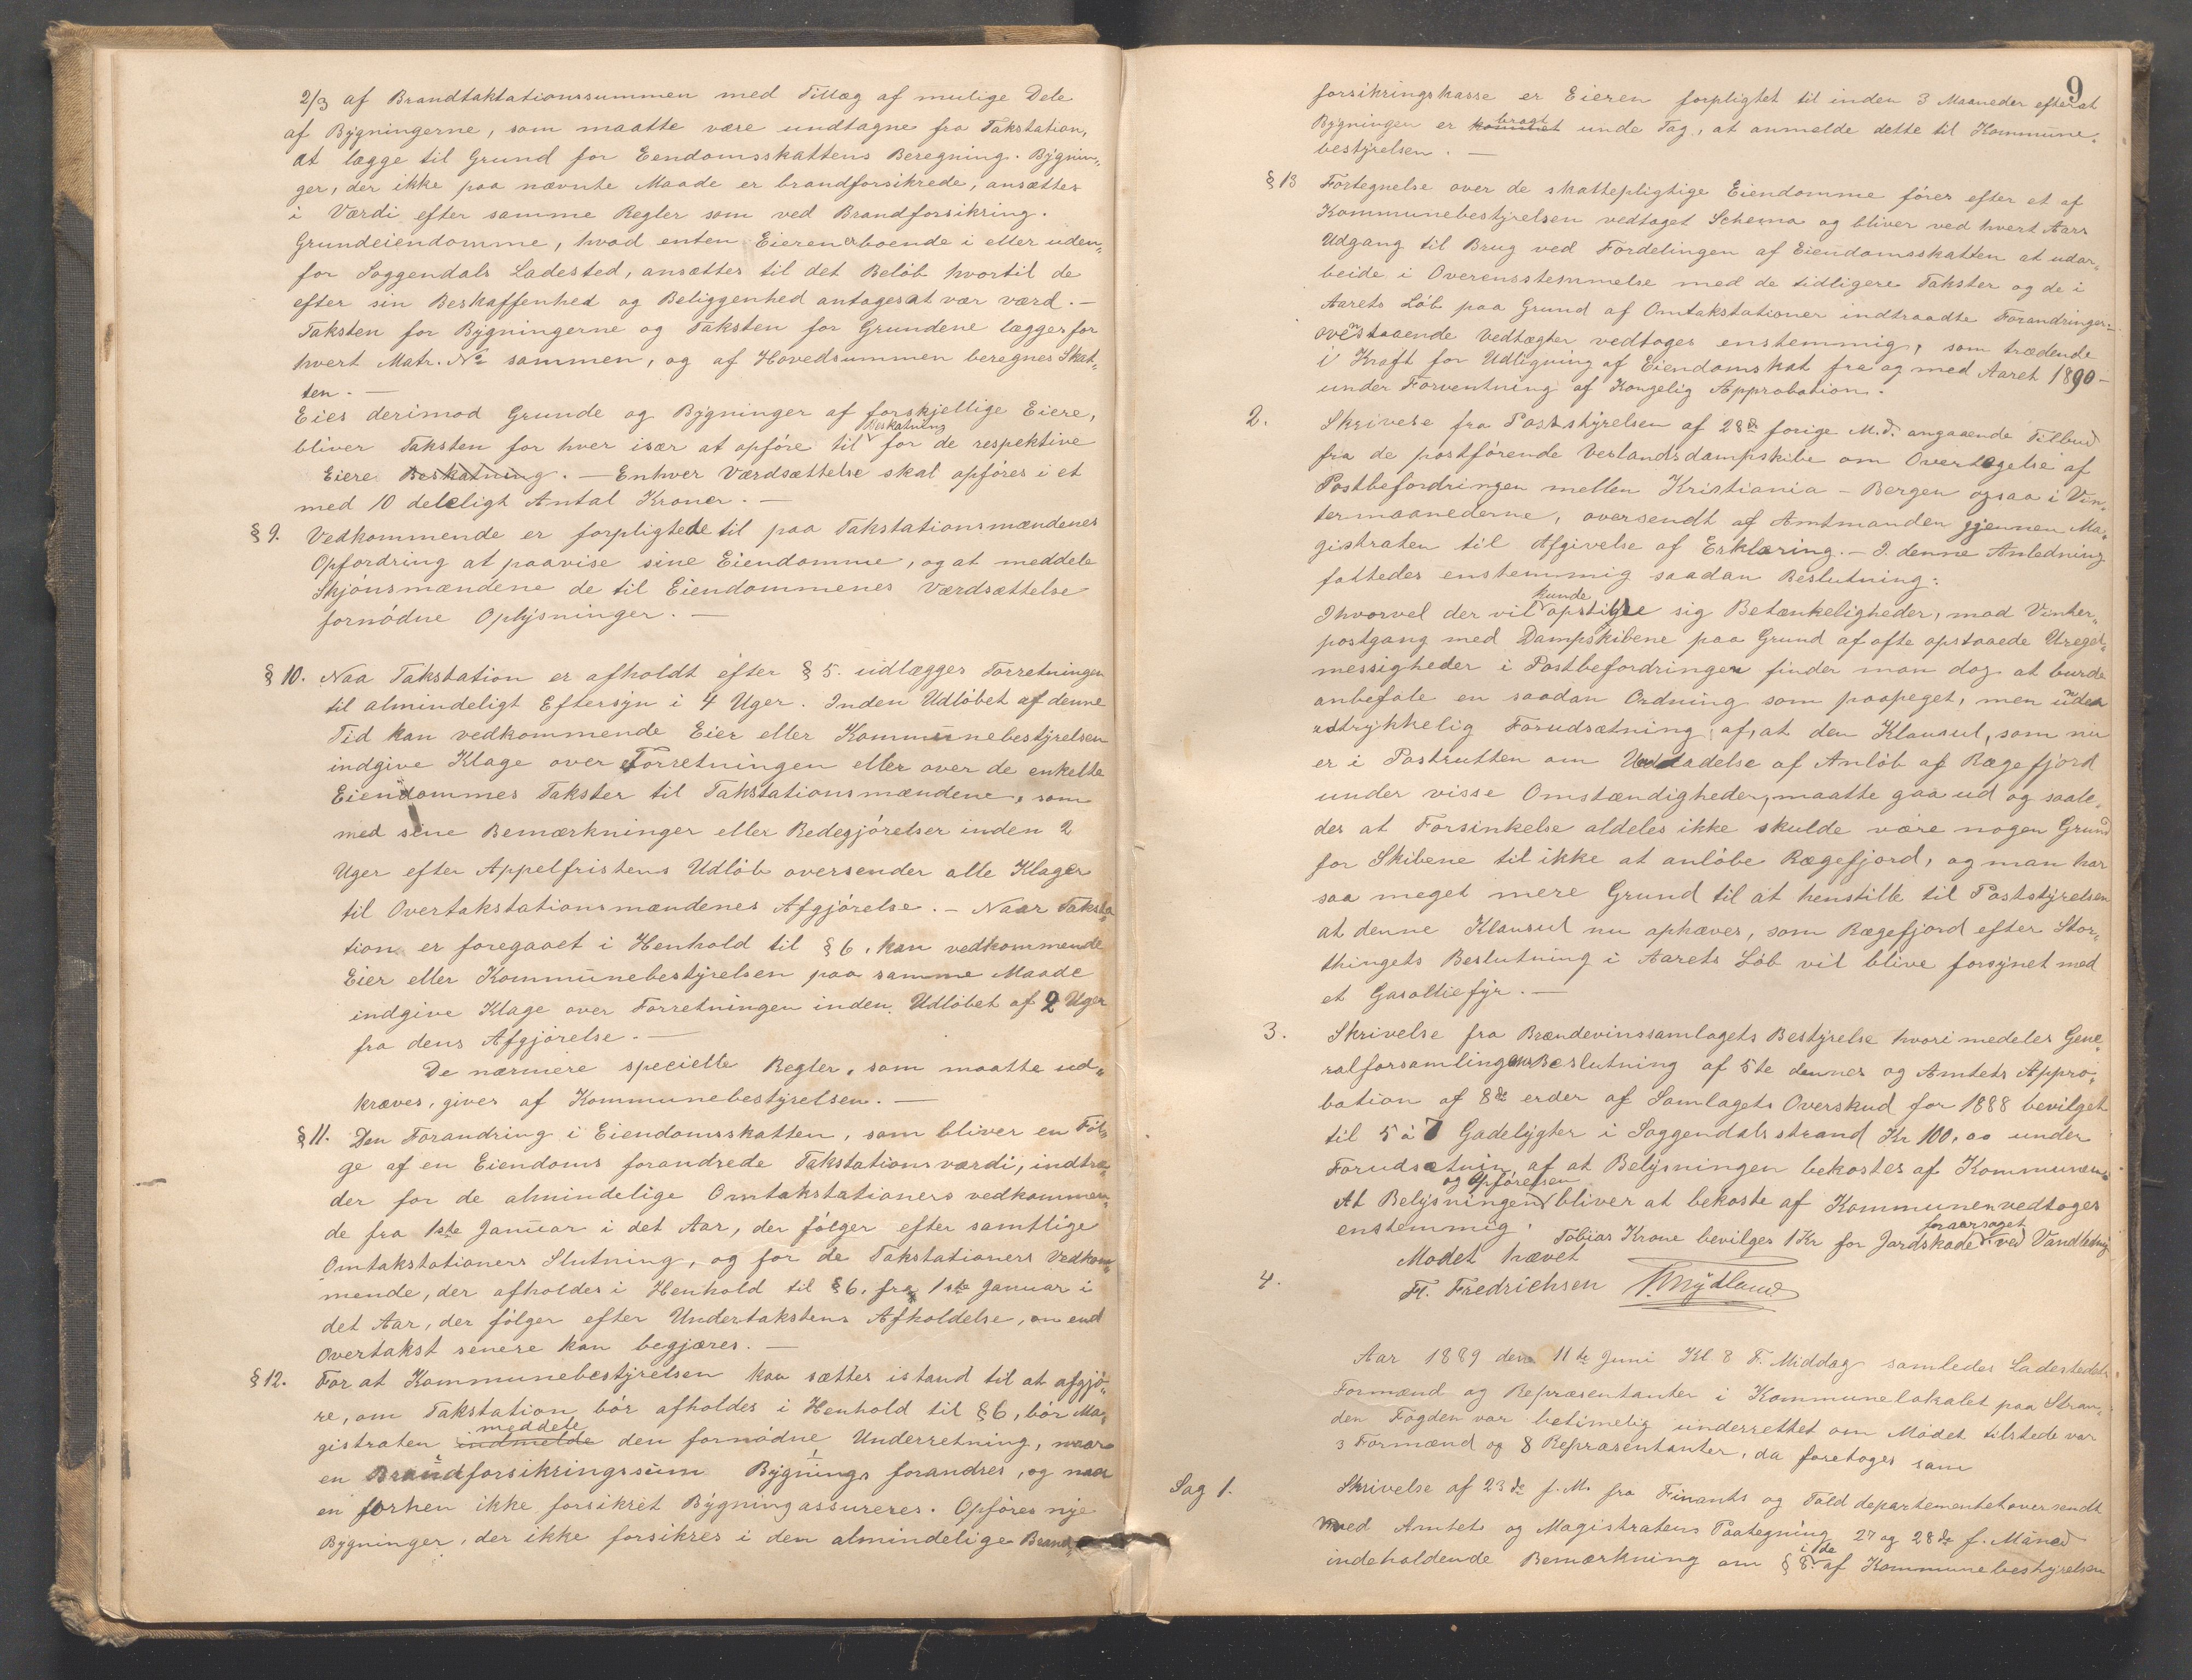 2/3 af Brandtaktationssummen med Tillæg af mulige Dele
af Bygningerne, som maatte være undtagne fra Takstation,
at lægge til Grund for Eendomsskattens Beregning. Bygnin„
ger, der ikke paa nævnte Maade er brandforsikrede, ansættes
i Værdi efter samme Regler som ved Brandforsikring.
Grundeiendomme, hvad enten Eieren er boende i eller uden„
for Soggendals Ladested, ansættes til det Beløb hvortil de
efter sin Beskaffenhed og Beliggenhed antages at vær værd. —
Taksten for Bygningerne og Taksten for Grundene lægges for
hvert Matr. No sammen, og af Hovedsummen beregnes Skat„
ten. —
Eies derimod Grunde og Bygninger af forskjellige Eiere,
Beskatning
bliver Taksten for hver især at opføre til for de respektive
Eiere Beskatning. — Enhver Værdsættelse skal opføres i et
med 10 deleligt Antal Kroner. —
§ 9. Vedkommende er forpligtede til paa Takstationsmændenes
Opfordring at paavise sine Eiendomme, og at meddele
Skjönsmændene de til Eiendommenes Værdsættelse
fornødne Oplysninger. —
§ 10. Naa Takstation er afholdt efter § 5. udlægges Forretningen
til almindeligt Eftersyn i 4 Uger. Inden Udløbet af denne
Tid kan vedkommende Eier eller Kommunebestyrelsen
indgive Klage over Forretningen eller over de enkelte
Eiendommes Takster til Takstationsmændene, som
med sine Bemærkninger eller Redegjørelser inden 2
Uger efter Appelfristens Udløb oversender alle Klager
til Overtakstationsmændenes Afgjørelse. — Naar Taksta„
tion er foregaaet i Henhold til § 6, kan vedkommende
Eier eller Kommunebestyrelsen paa samme Maade
indgive Klage over Forretningen inden Udløbet af 2 Uger
fra dens Afgjørelse. —
De nærmere specielle Regler, som maatte ud„
kræves, gives af Kommunebestyrelsen. —
§ 11. Den Forandring i Eiendomsskatten, som bliver en Føl„
ge af en Eiendoms forandrede Takstationsværdi, indtræ„
der for de almindelige Omtakstationers vedkommen„
de fra 1ste Januar i det Aar, der følger efter samtlige
Omtakstationers Slutning, og for de Takstationers Vedkom„
mende, der afholdes i Henhold til § 6, fra 1ste Januar i
det Aar, der følger efter Undertakstens Afholdelse, om end
Overtakst senere kan begjæres. —
§ 12. For at Kommunebestyrelsen kan sættes istand til at afgjø„
re, om Takstation bör afholdes i Henhold til § 6, bör Ma„
meddele
gistraten indmelde den fornødne Underretning, naar
en Brandforsikringssum Bygnings forandres, og naar
en forhen ikke forsikret Bygning assureres. Opføres nye
Bygninger, der ikke forsikres i den almindelige Brand„
9
forsikringskasse er Eieren forpligtet til inden 3 Maaneder efterat
bragt
Bygningen er kommet unde Tag, at anmelde dette til Kommune„
bestyrelsen. —
§ 13 Fortegnelse over de skattepligtige Eiendomme føres efter et af
Kommunebestyrelsen vedtaget Schema og bliver ved hvert Aars
Udgang til Brug ved Fordelingen af Eiendomsskatten at udar„
beide i Overensstemmelse med de tidligere Takster og de i
Aarets Løb paa Grund af Omtakstationer indtraadte Forandringer. —
ovenstaaende Vedtægter vedtoges enstemmig, som trædende
i Kraft for Udligning af Eiendomskat fra og med Aaret 1890 —
under Forventning af Kongelig Approbation.
2. Skrivelse fra Poststyrelsen af 28de forige M.d. angaaende Tilbud
fra de postførende Vestlandsdampskibe om Overtagelse af
Postbefordringen mellem Kristiania - Bergen ogsaa i Vin„
termaanederne, oversendt af Amtmanden gjennem Ma„
gistraten til Afgivelse af Erklæring. — I denne Anledning
fattedes enstemmig saadan Beslutning:
kunde
Ihvorvel der vil opstille sig Betænkeligheder, mod Vinter„
postgang med Dampskibene paa Grund af ofte opstaaede Uregel„
messigheder i Postbefordringen finder man dog at burde
anbefale en saadan Ordning som paapeget, men under
udtrykkelig Forudsætning af, at den Klausul, som nu
er i Postrutten om Undladelse af Anløb af Rægefjord
under visse Omstændigheder, maatte gaa ud og saale„
des at Forsinkelse aldeles ikke skulde være nogen Grund
for Skibene til ikke at anløbe Rægefjord, og man har
saa meget mere Grund til at henstille til Poststyrelsen
at denne Klausul nu ophæves, som Rægefjord efter Stor„
thingets Beslutning i Aarets Løb vil blive forsynet med
et Gasoliefyr. —
3. Skrivelse fra Brændevinssamlagets Bestyrelse hvori medeles Gene„
ralforsamlingens Beslutning af 5te dennes og Amtets Appro„
bation af 8de er der af Samlagets Overskud for 1888 bevilget
til 5 á 7 Gadelygter i Soggendalsstrand Kr 100,00 under
Forudsætnin, af at Belysningen bekostes af Kommunen„
og Opførelsen
At Belysningen bliver at bekoste af Kommunen vedtoges
enstemmig.
foraarsaget
4. Tobias Krone bevilges 1 Kr for Jordskade ved Vandledng
Mødet hævet
Fr. Fredrichsen Mydland
Aar 1889 den 11te Juni Kl. 8 F. Middag samledes Ladestedets
Formænd og Repræsentanter i Kommunelokalet paa Stran„
den Fogden var betimelig underrettet om Mødet tilstede var
3 Formænd og 8 Repræsentanter, da foretoges som
Sag 1. Skrivelse af 23de f. M. fra Finants og Told departementet oversendt
med Amtets og Magistratens Paategning 27 og 28de f. Måned
i de
indeholdende Bemærkning om § 8. af Kommunebestyrelsen